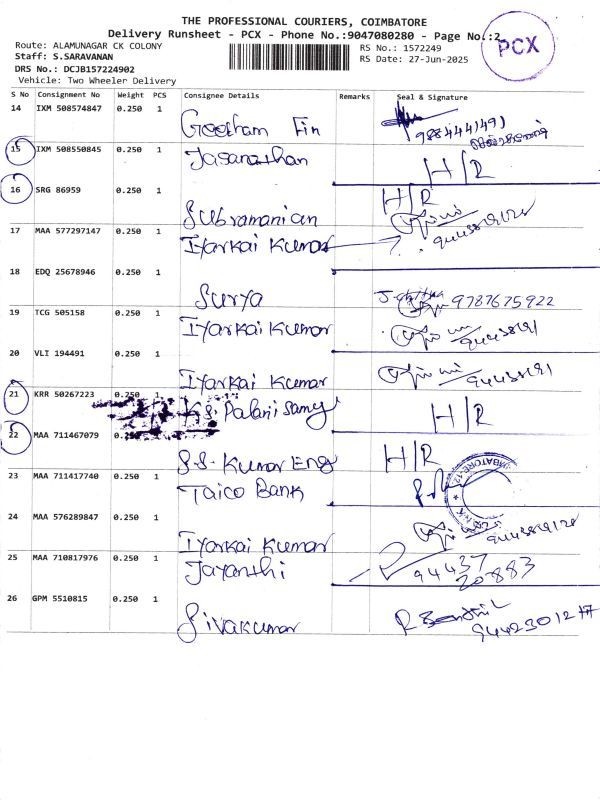 THE PROFESSIONAL COURIERS, COIMBATORE
Delivery Runsheet - PCX - Phone No.:9047080280 - Page No.:2
PCX
Route: ALAMUNAGAR CK COLONY
RS No.: 1572249
Staff: S.SARAVANAN
RS Date: 27-Jun-2025
DRS No.: DCJB157224902
Vehicle: Two Wheeler Delivery
S No Consignment No Weight PCS Consignee Details Remarks Seal & Signature
14 IXM 508574847 0.250 1
Gootham Fin
15 IXM 508550845 0.250 1
H/R
16 SRG 86959 0.250 1 H/R
Subramanian
17 MAA 577297147 0.250 1 Iyarkai Kumar
18 EDQ 25678946 0.250 1
Surya 9787675922
19 TCG 505158 0.250 1
Iyarkai Kumar
20 VLI 194491 0.250 1
Iyarkai Kumar
21 KRR 50267223 0.250 1
K.S. Palanisamy H/R
22 MAA 711467079 0.250
S.S. Kumar Eng H/R
23 MAA 711417740 0.250 1 Taico Bank
24 MAA 576289847 0.250 1
Iyarkai Kumar
25 MAA 710817976 0.250 1 Jayanthi 94437
20883
26 GPM 5510815 0.250 1
Sivakumar